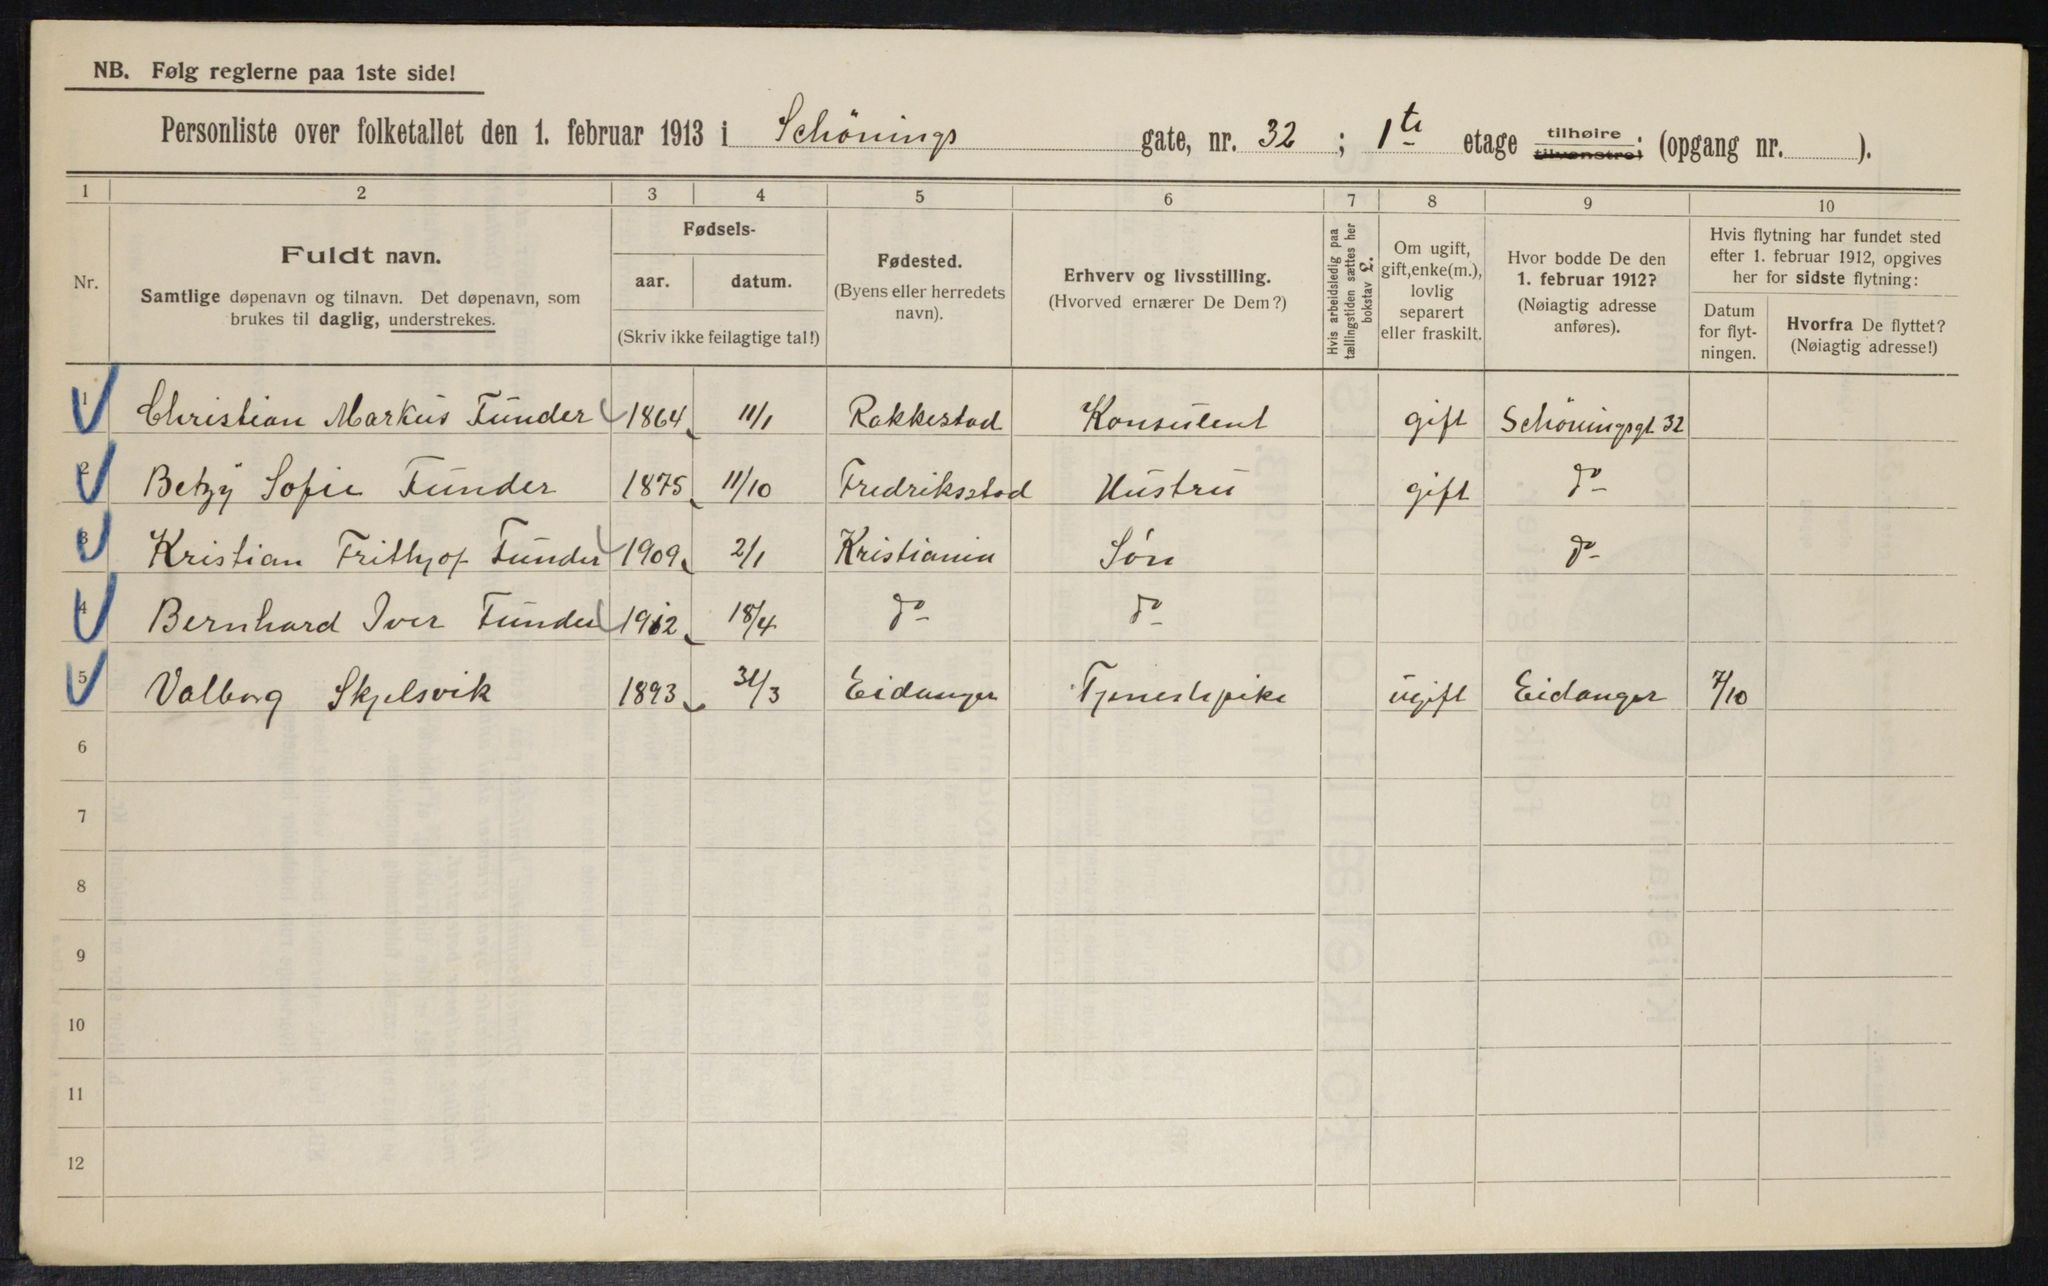 NB. Følg reglerne paa 1ste side!
Personliste over folketallet den 1. februar 1913 i Schönings gate, nr. 32 ; 1ste etage tilhøire tilvenstre; (opgang nr. ).
1 2 3 4 5 6 7 8 9 10
Nr.
Fuldt navn.
Samtlige døpenavn og tilnavn. Det døpenavn, som
brukes til daglig, understrekes.
Fødsels-
aar. datum.
(Skriv ikke feilagtige tal!)
Fødested.
(Byens eller herredets
navn).
Erhverv og livsstilling.
(Hvorved ernærer De Dem?)
Hvis arbeidsledig paa
tællingstiden sættes her
bokstav L.
Om ugift,
gift, enke(m.),
lovlig
separert
eller fraskilt.
Hvor bodde De den
1. februar 1912?
(Nøiagtig adresse
anføres).
Hvis flytning har fundet sted
efter 1. februar 1912, opgives
her for sidste flytning:
Datum
for flyt-
ningen.
Hvorfra De flyttet?
(Nøiagtig adresse!)
1 Christian Markus Funder 1864 11/1 Rakkestad Konsulent gift Schöningsgt 32
2 Betzy Sofie Funder 1875 11/10 Fredriksstad Hustru gift do
3 Kristian Frithjof Funder 1909 2/1 Kristiania Søn do
4 Bernhard Iver Funder 1912 18/4 do do
5 Valborg Skjelsvik 1893 31/3 Eidanger Tjenestepike ugift Eidanger 7/10
6
7
8
9
10
11
12